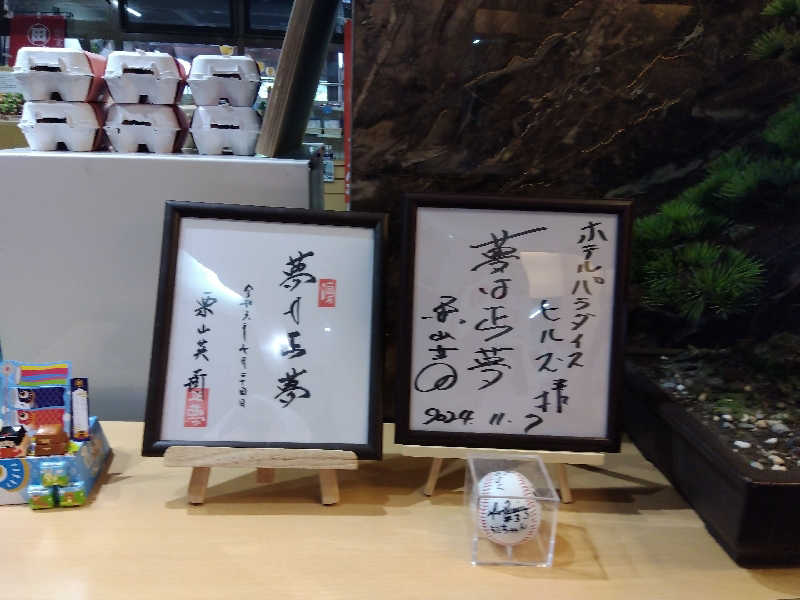 夢は正夢
令和六年七月二十四日
栗山英樹
ホテルパラダイス
ヒルズ様
夢は正夢
栗山英樹
2024.11.7